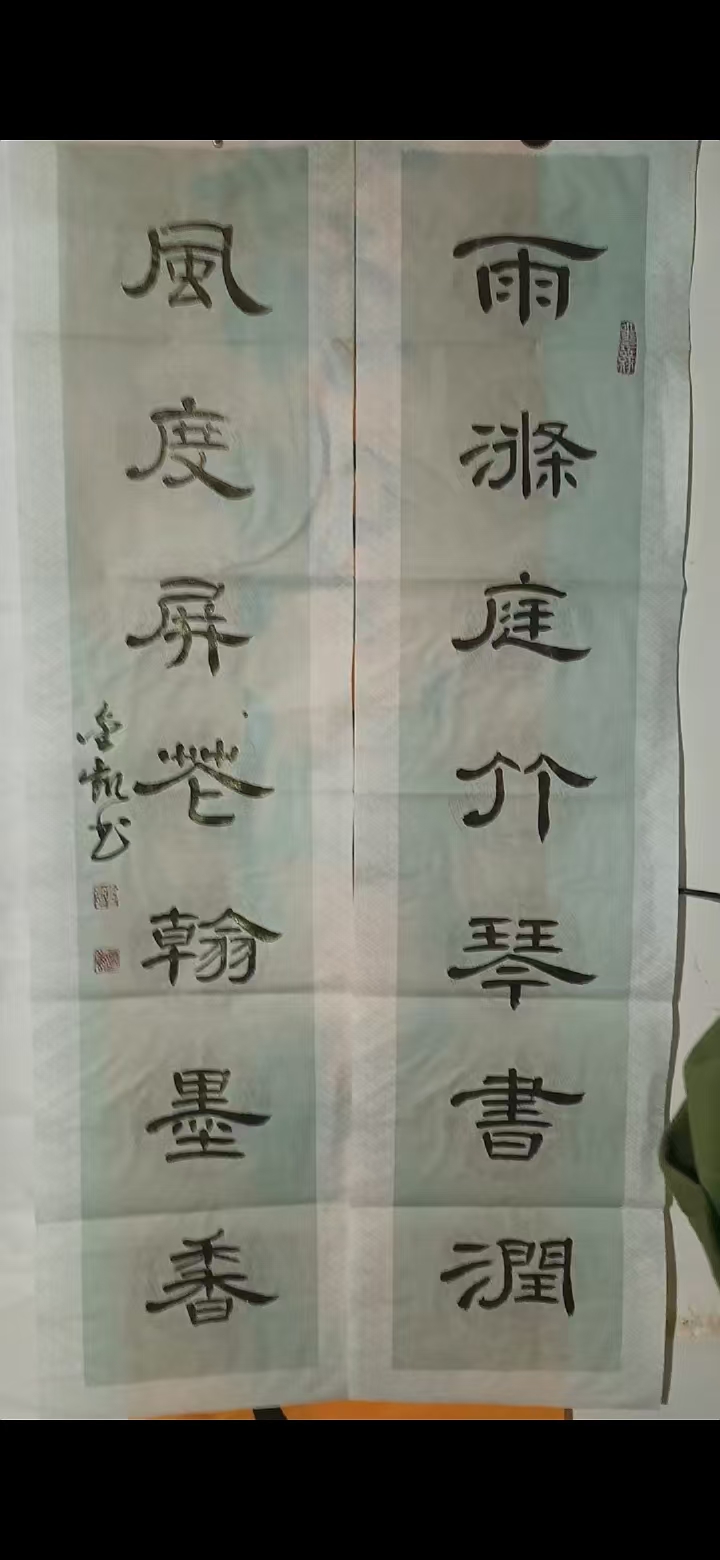 雨滌庭竹琴書潤
風度屏花翰墨香